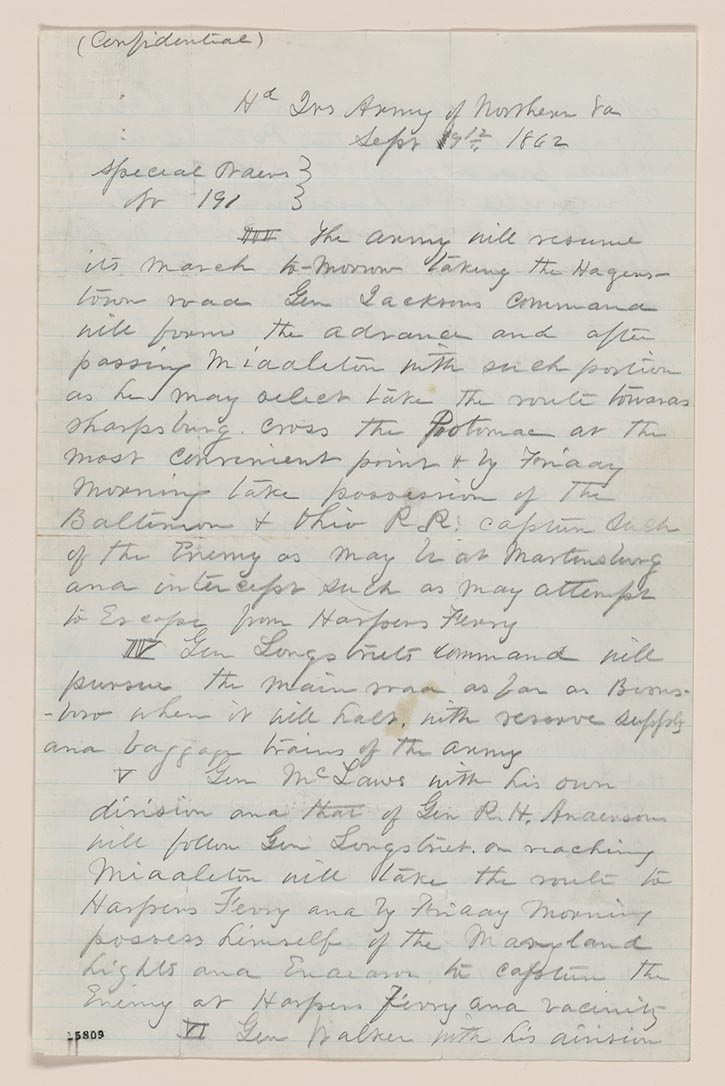 (Confidential)
Hd Qrs Army of Northern Va
Sept 9th 1862
Special Orders }
No 191 }
III The army will resume
its march to-morrow taking the Hagers-
town road Gen Jacksons command
will form the advance and after
passing Middleton with such portion
as he may select take the route towards
Sharpsburg. Cross the Potomac at the
most convenient point & by Friday
Morning take possession of the
Baltimore & Ohio R.R. capture such
of the Enemy as may be at Martinsburg
and intercept such as may attempt
to Escape from Harpers Ferry
IV Gen Longstreets command will
pursue the main road as far as Boons-
-boro where it will halt, with reserve supply
and baggage trains of the army
V Gen McLaws with his own
division and that of Gen R.H. Andersons
will follow Gen Longstreet. on reaching
Middleton will take the route to
Harpers Ferry and by Friday Morning
possess himself of the Maryland
hights and Endeavor to capture the
Enemy at Harpers Ferry and vacinity
VI Gen Walker with his division
15809